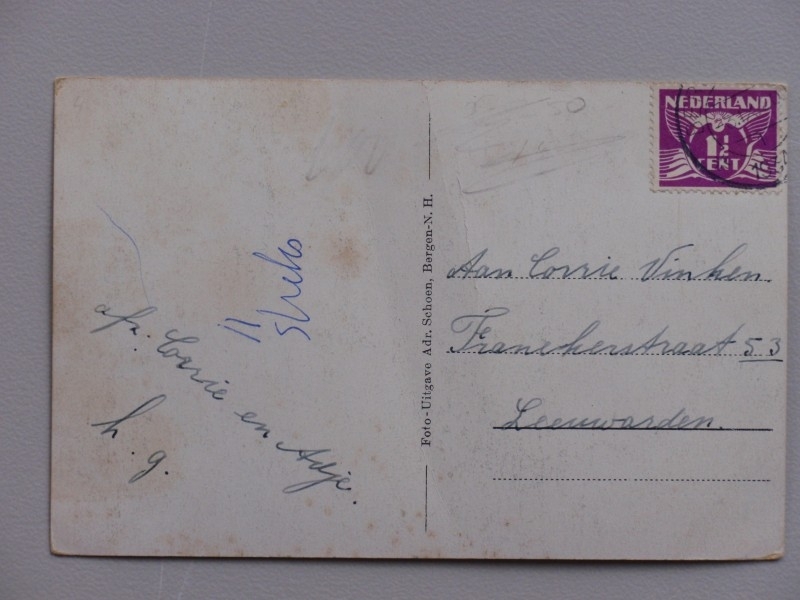 NEDERLAND
1½
CENT
Aan Corrie Vinken.
Franekerstraat 53
Leeuwarden.
Foto-Uitgave Adr. Schoen, Bergen-N. H.
afz. Corrie en Adje.
h. g.